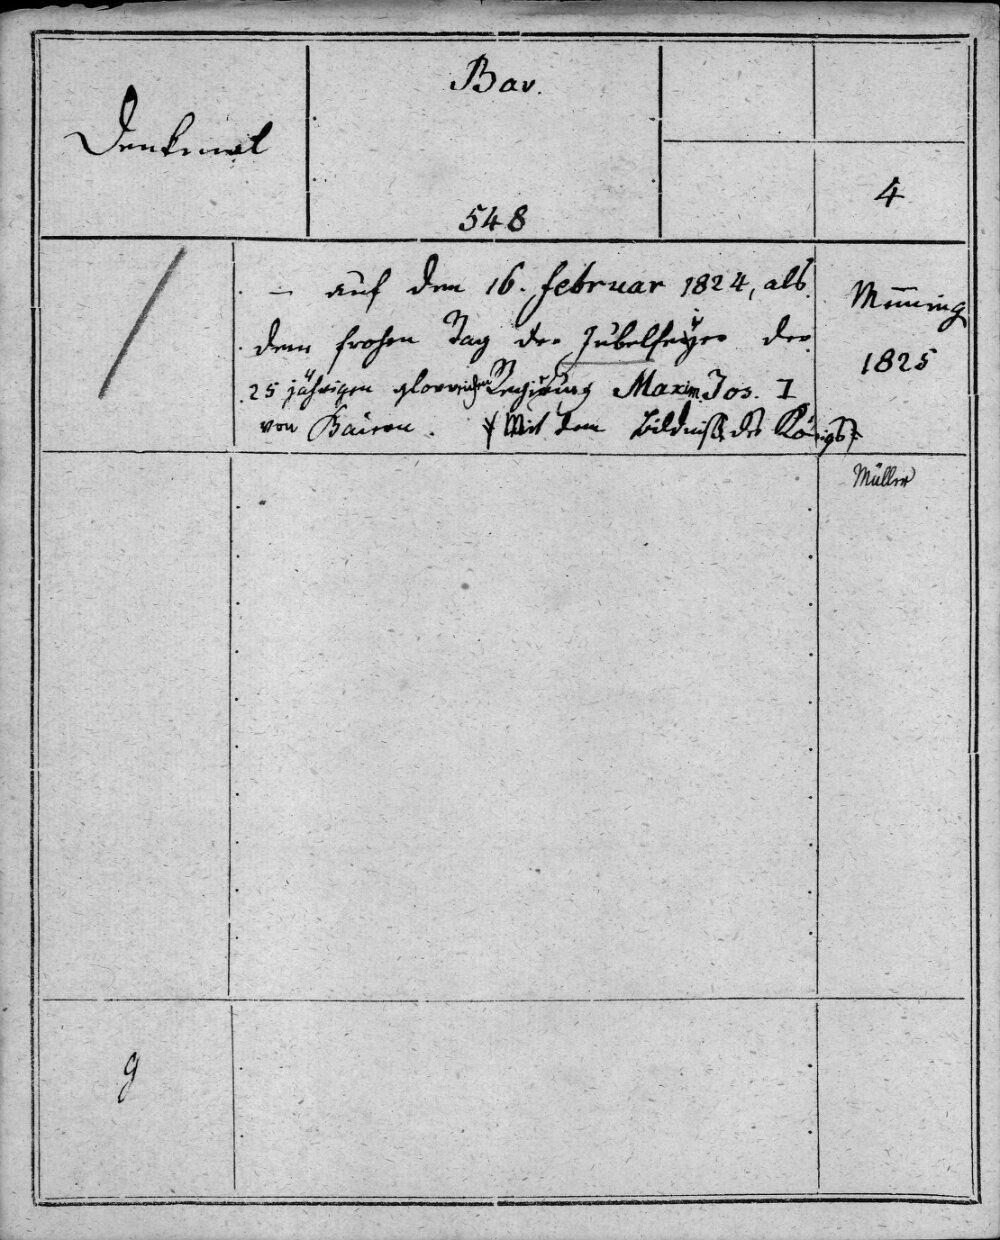 Denkmal
Bav.
548
4
– auf den 16. Februar 1824, als
dem frohen Tag der Jubelfeyer der
25 jährigen glorreichen Regierung Maxim. Jos. I
von Baiern. (Mit dem Bildniß des Königs)
Memming
1825
Müller
g